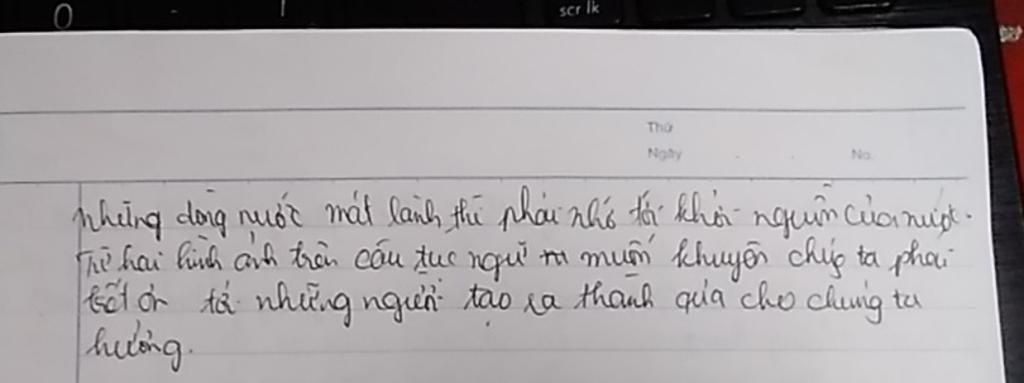 scr lk
Thứ
Ngày
No.
những dòng nước mát lành thì phải nhớ tới khởi nguồn của nước.
Từ hai hình ảnh trên câu tục ngữ muốn khuyên chúng ta phải
biết ơn tới những người tạo ra thành quả cho chúng ta
hưởng.